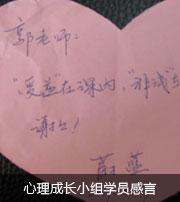 郭老师：
"受益"在课内，"群成"在
谢谢！
蔚蓝
心理成长小组学员感言